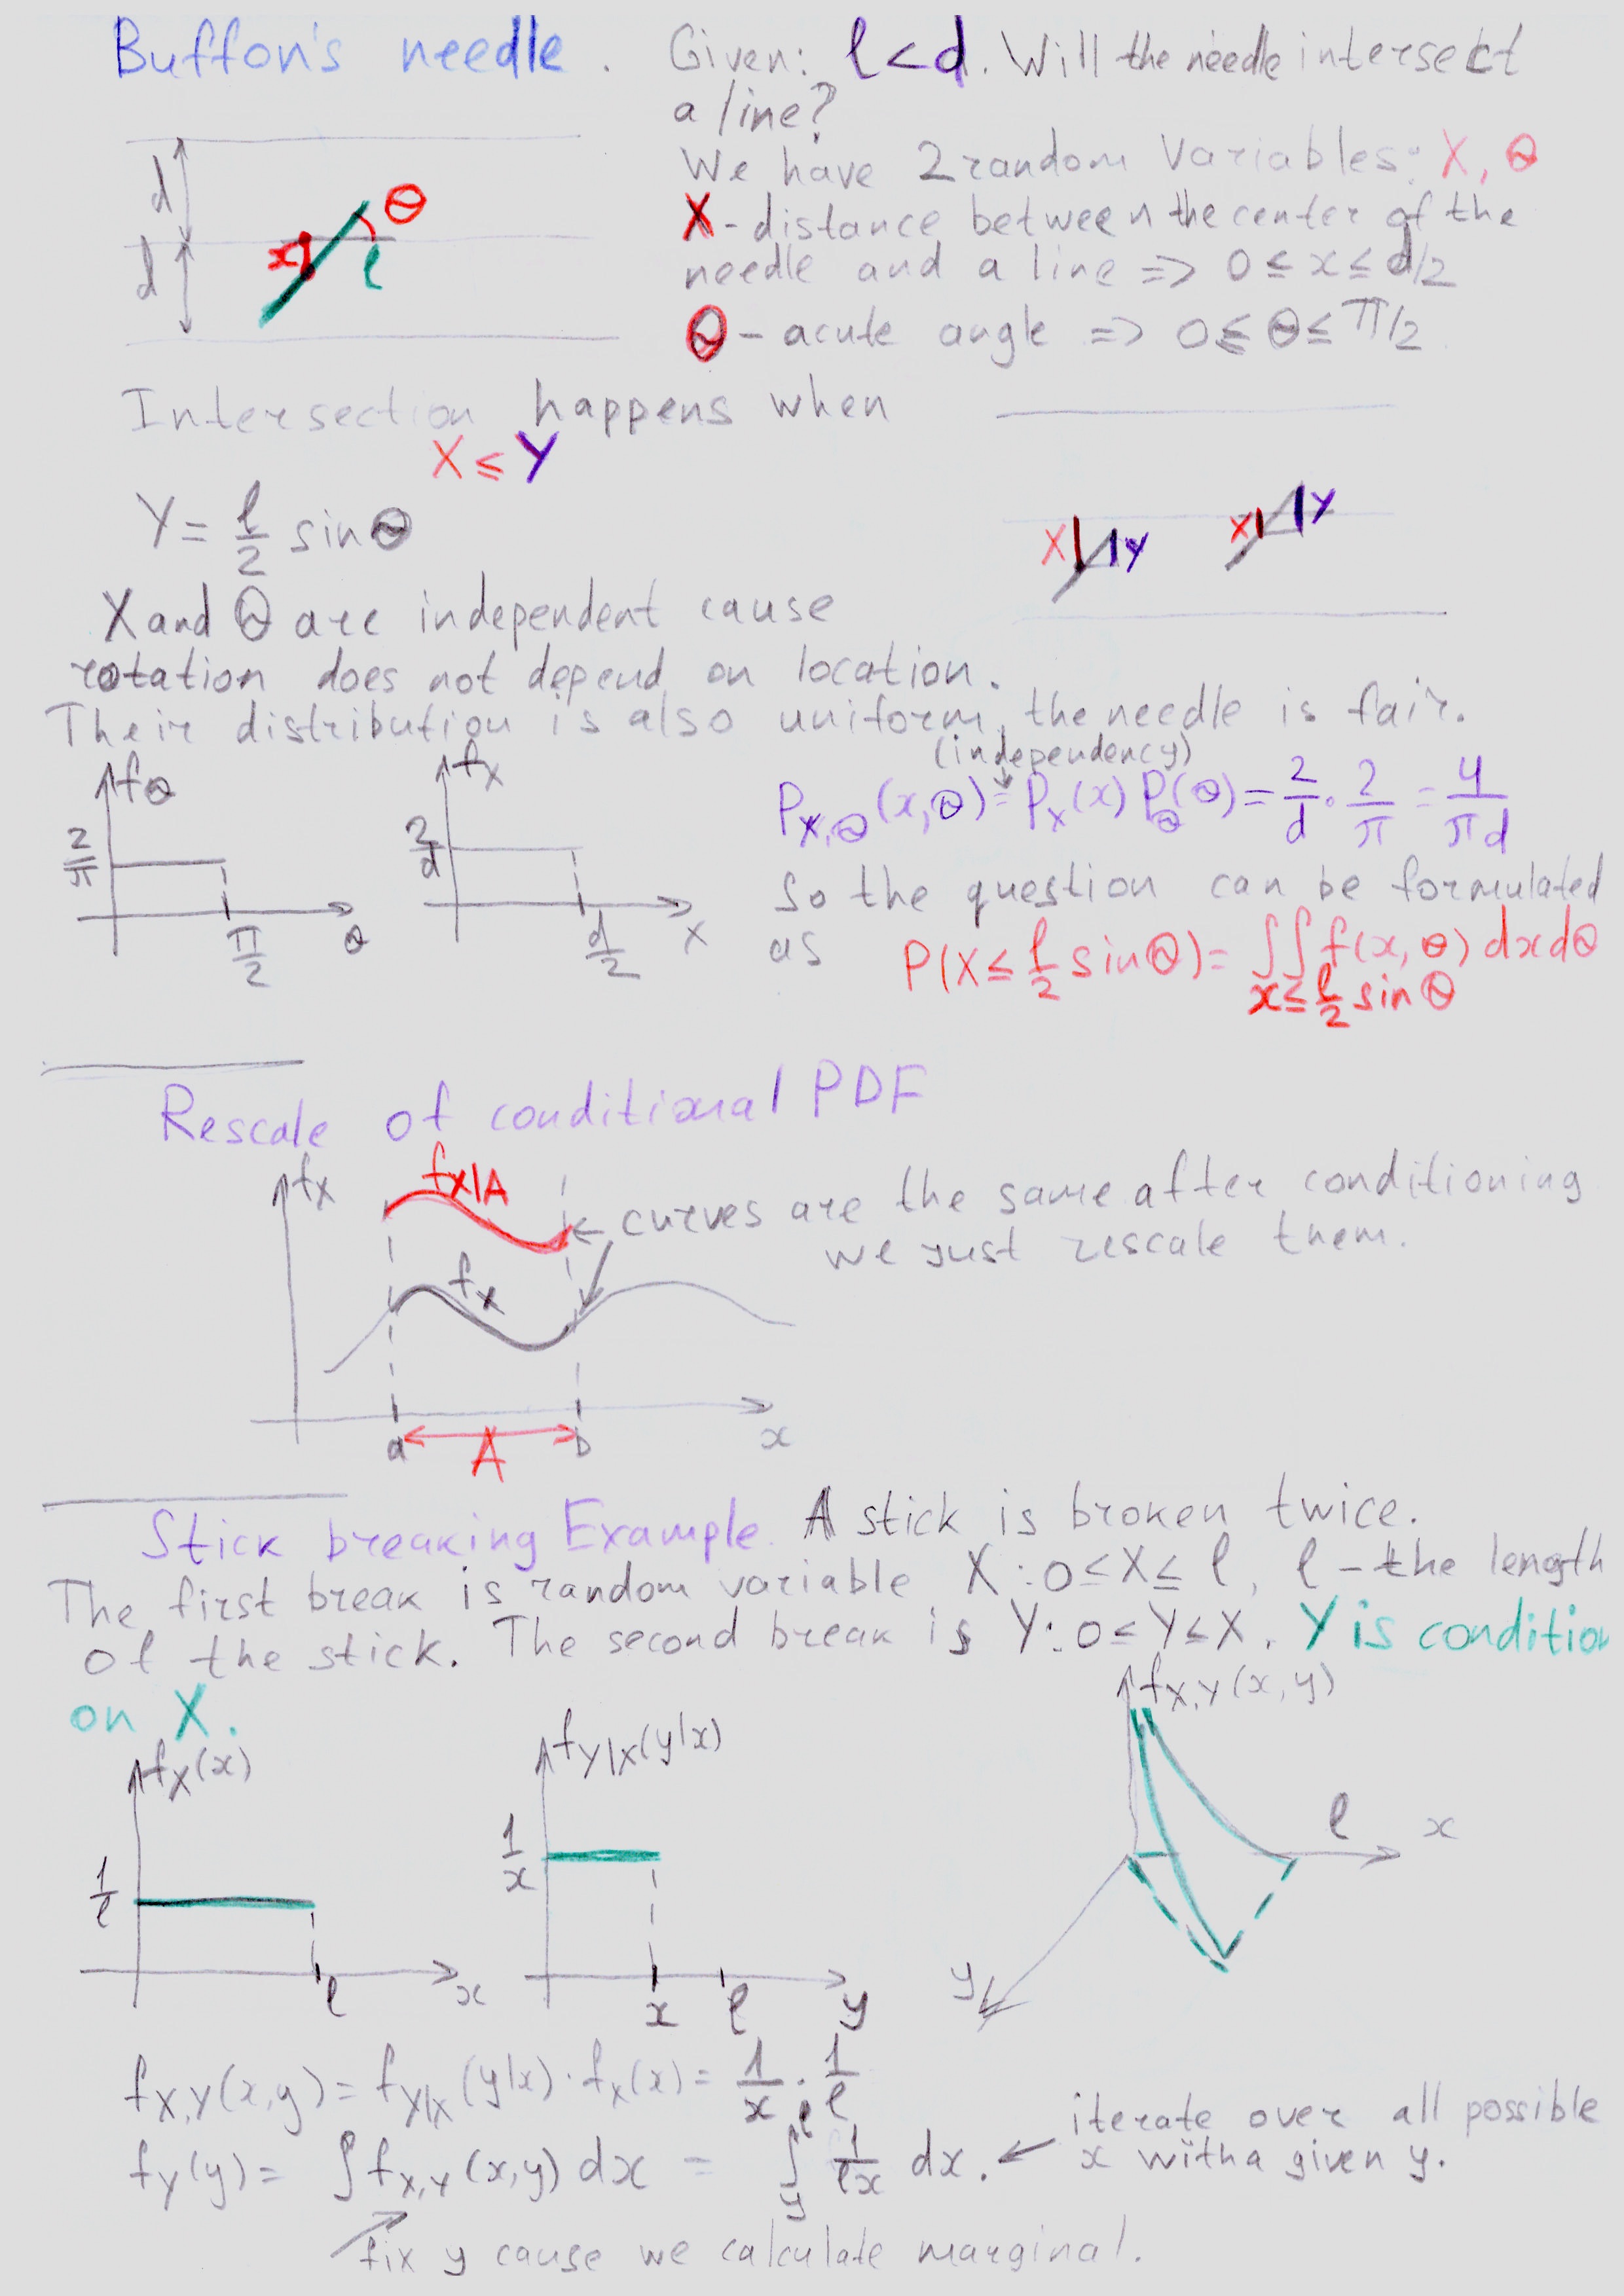 Buffon's needle. Given: l<d. Will the needle intersect
a line?
We have 2 random variables: X, Θ
X - distance between the center of the
needle and a line => 0 ≤ x ≤ d/2
Θ - acute angle => 0 ≤ Θ ≤ π/2
d
d
x
Θ
l
Intersection happens when
X ≤ Y
Y = l/2 sinΘ
X Y
X Y
X and Θ are independent cause
rotation does not depend on location.
Their distribution is also uniform, the needle is fair.
(independency)
P_X,Θ(x,Θ) = P_X(x) P_Θ(Θ) = 2/d · 2/π = 4/πd
fΘ
2/π
π/2
Θ
f_X
2/d
d/2
X
So the question can be formulated
as P(X ≤ l/2 sinΘ) = ∫∫ f(x,Θ) dx dΘ
x ≤ l/2 sinΘ
Rescale of conditional PDF
f_X
f_X|A
curves are the same after conditioning
we just rescale them.
f_X
a A b x
Stick breaking Example. A stick is broken twice.
The first break is random variable X: 0≤X≤l, l - the length
of the stick. The second break is Y: 0≤Y≤X. Y is condition
on X.
f_X(x)
1/l
l
x
f_Y|X(y|x)
1/x
x
l
y
f_X,Y(x,y)
l
x
y
f_X,Y(x,y) = f_Y|X(y|x) · f_X(x) = 1/x · 1/l
f_Y(y) = ∫ f_X,Y(x,y) dx = ∫_y^l 1/lx dx. ← iterate over all possible
x with a given y.
fix y cause we calculate marginal.